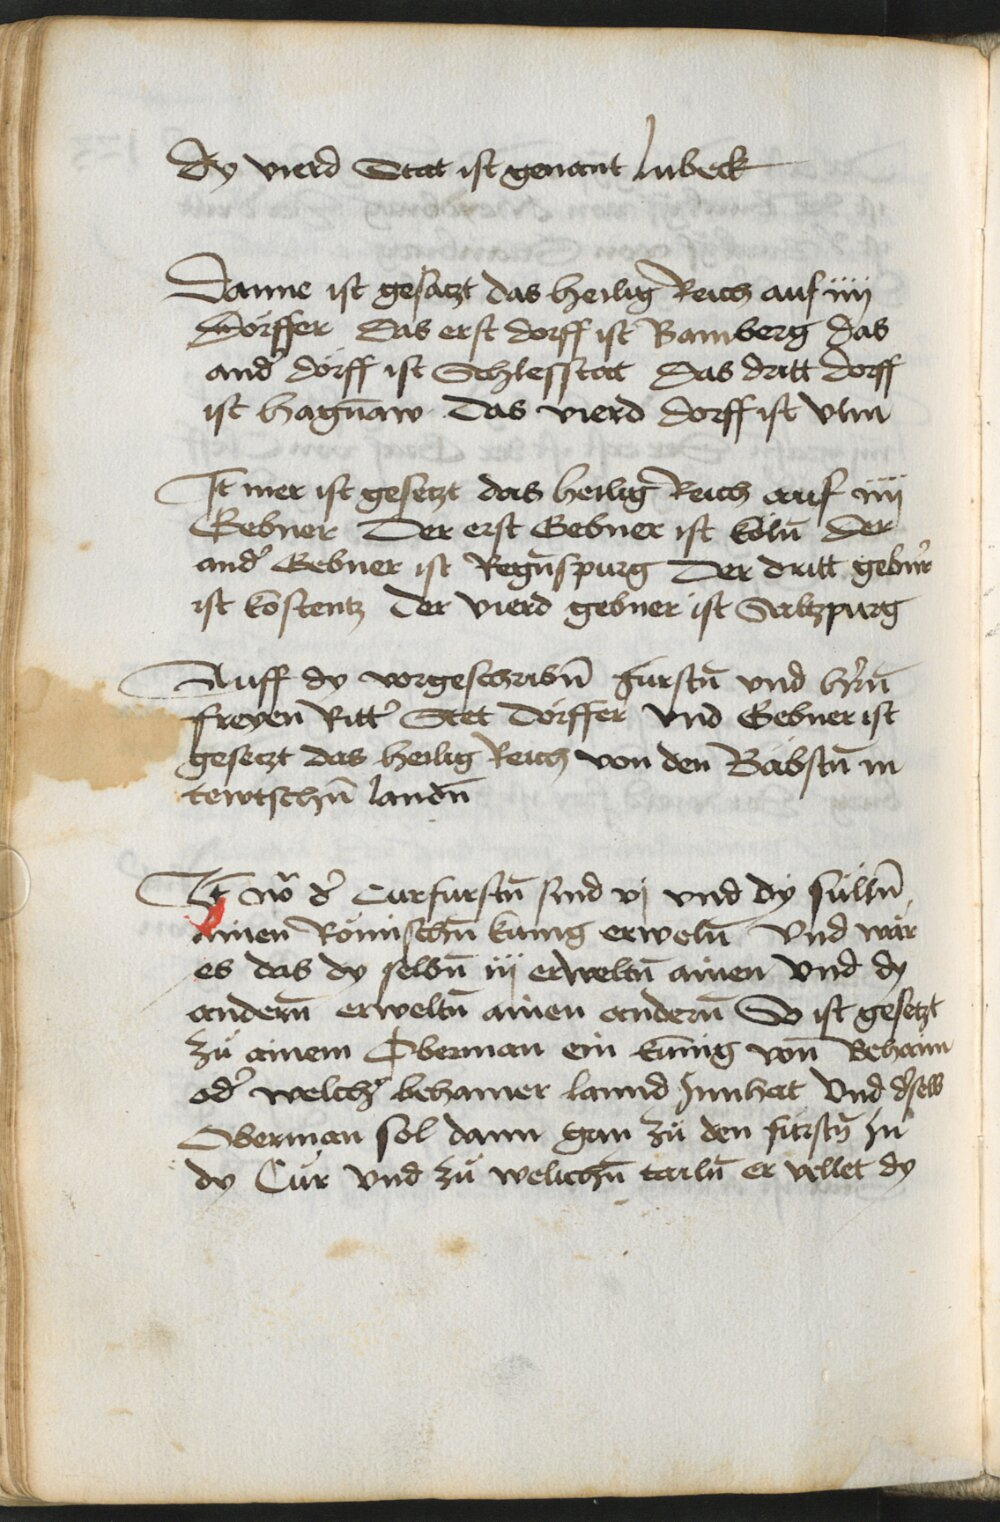 Dy vierd Stat ist genant Lubeck
Danne ist gesatzt das heilig Reich auf iiii
Dörffer Das erst dorff ist Bamberg Das
and' dorff ist Schlesstat Das dritt dorff
ist hagnaw Das vierd dorff ist vlm
It mer ist gesetzt das heilig Reich auf iiii
Gebner Der erst Gebner ist Köln̄ Der
and' Gebner ist Regn̄spurg Der dritt gebn'
ist kostentz Der vierd gebner ist Saltzpurg
Auff dy vorgeschribn̄ fürstn̄ vnd h'rn̄
freyen Ritt' Stet Dörffer vnd Gebner ist
gesetzt das heilig Reich von den Bäbstn̄ in
tewtschn̄ landn̄
It d' Curfurstn̄ sind vj vnd dy sülln̄
ainen Römischn̄ künig erweln̄ Vnd wär
es das dy selbn̄ iij erweltn̄ ainen Vnd dy
andern̄ erweltn̄ ainen andern̄ So ist gesetzt
zu ainem Oberman ein künig von Behaim
od' welch' behamer lannd Innhat Vnd d'selb
Oberman sol dann gan zü den fürstn̄ In
dy Cür Vnd zü welichn̄ tailn̄ er vellet dy